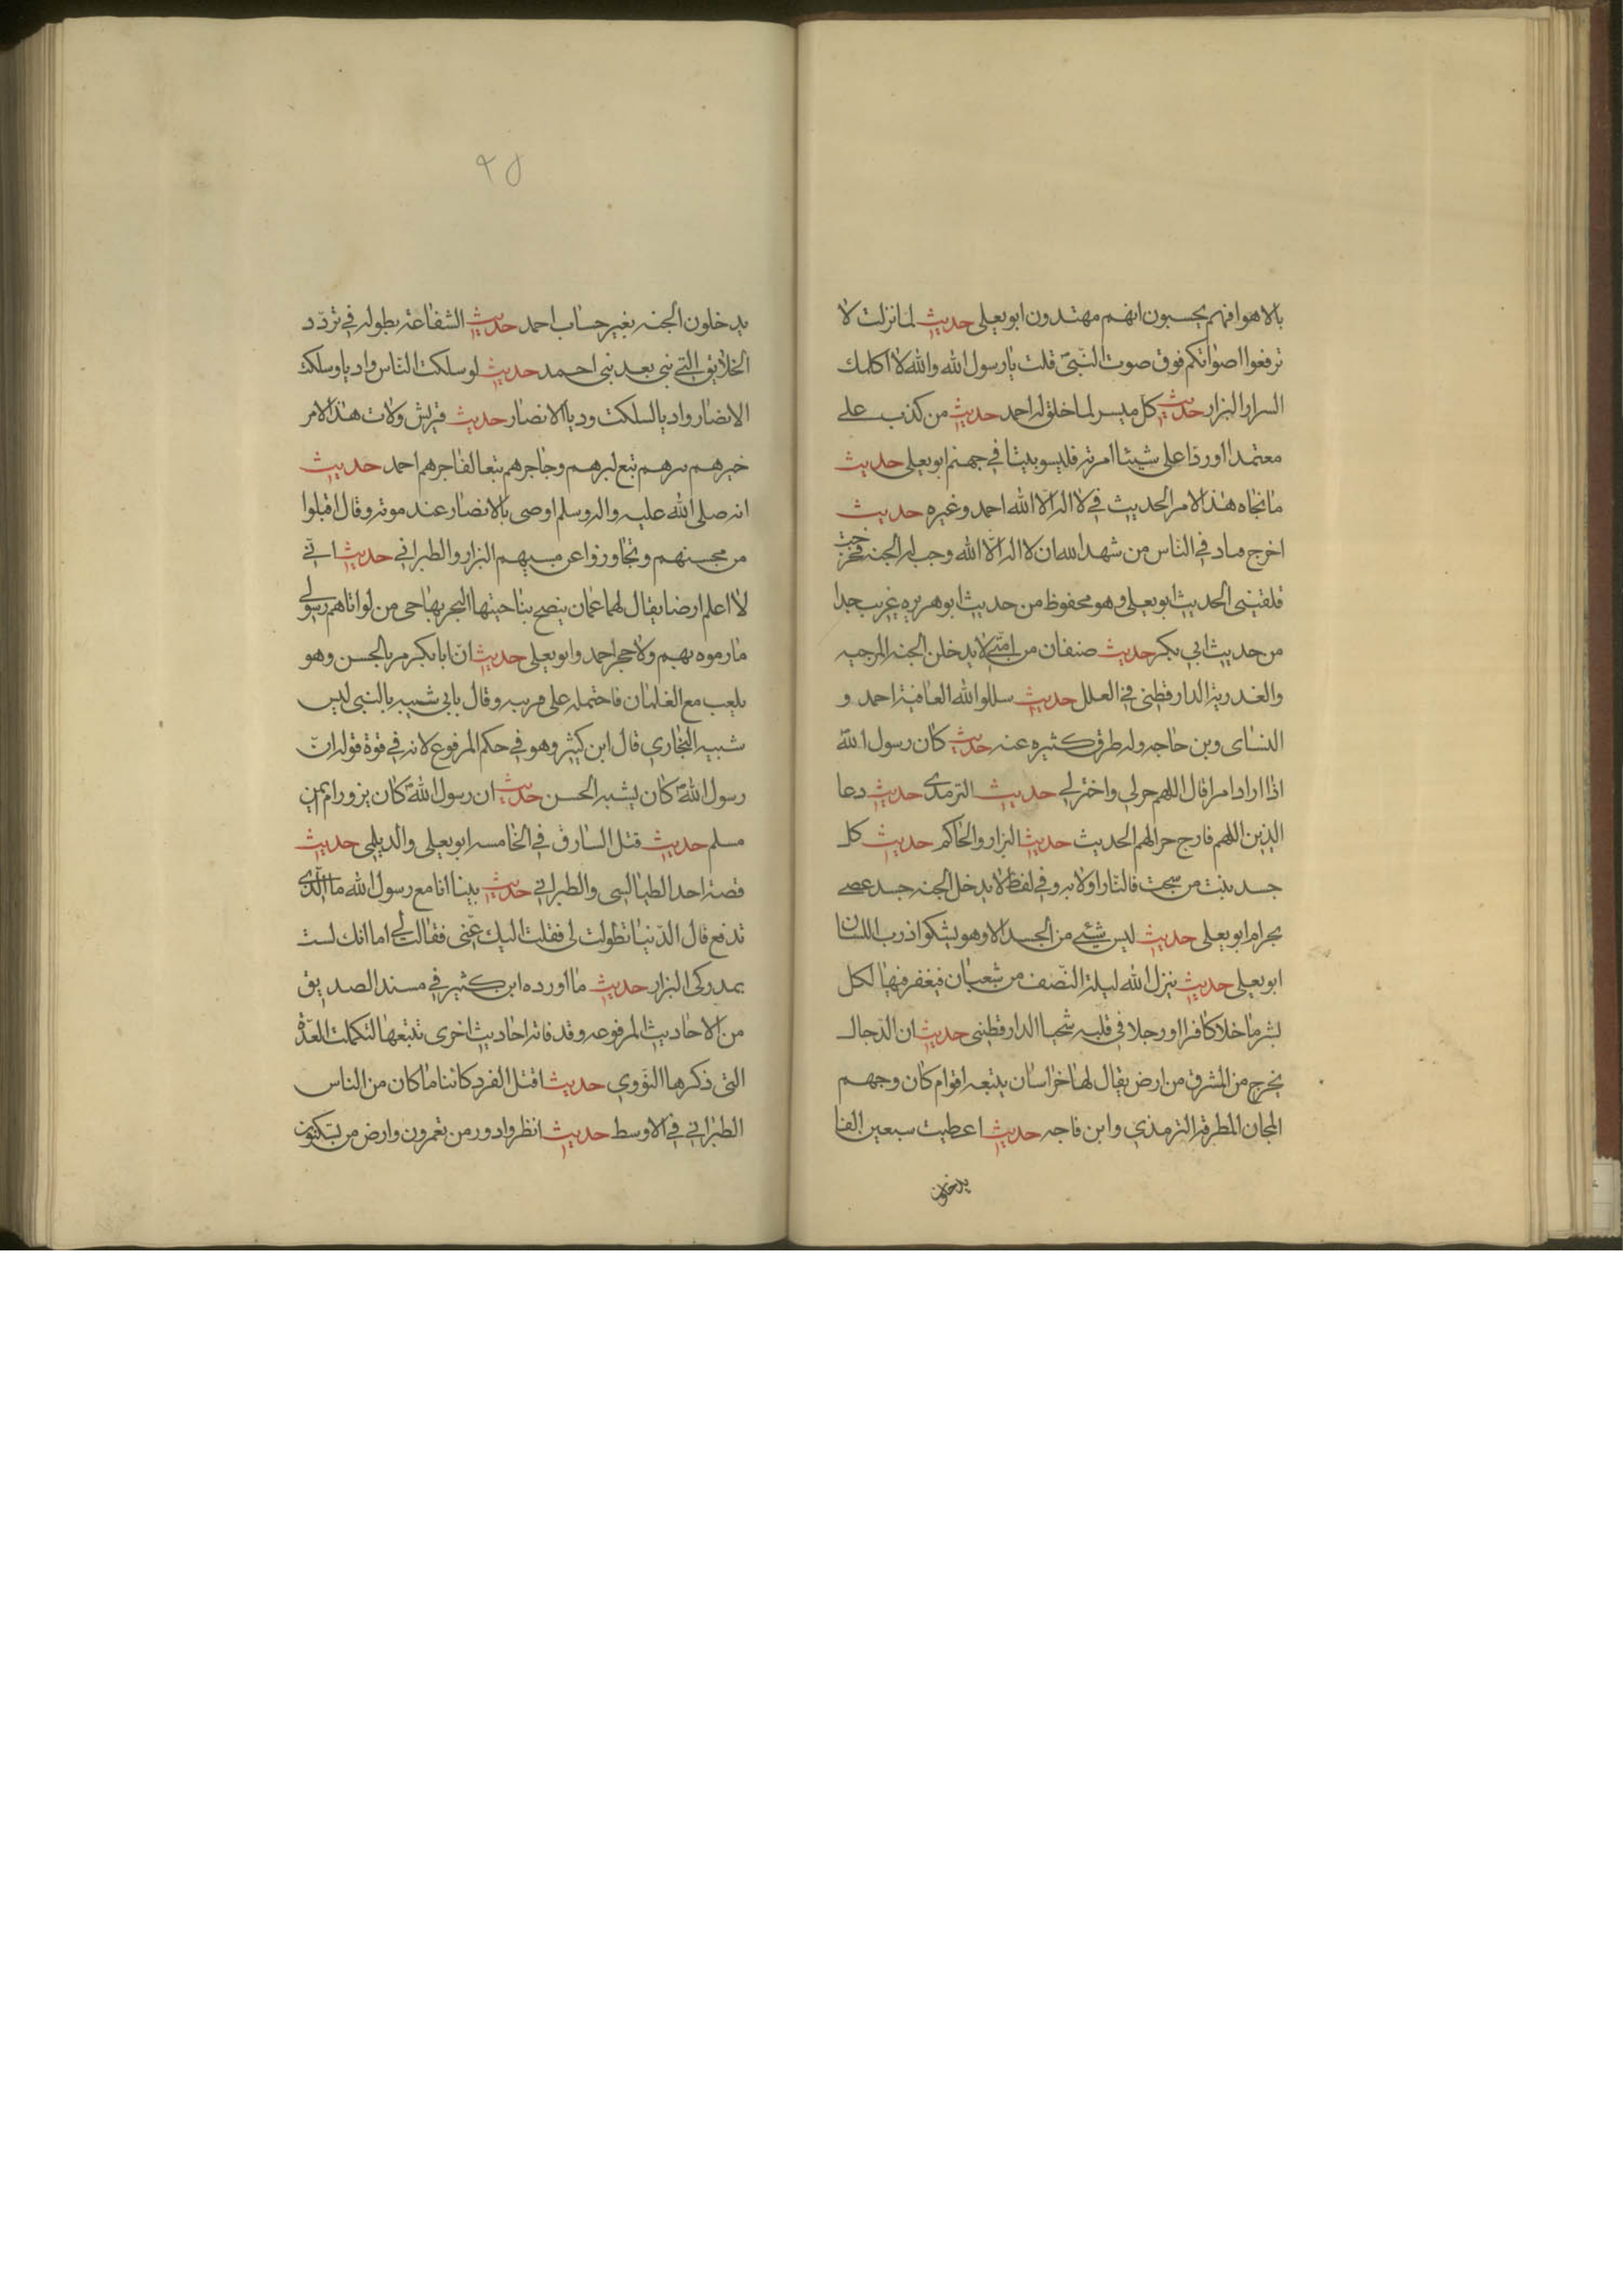 بالاهوا فهم يحسبون انهم مهتدون ابو يعلى حديث لما نزلت لا
ترفعوا اصواتكم فوق صوت النبىّ قلت يا رسول الله والله لا اكلمك
السرار البزار حديث كل ميسر لما خلق له احمد حديث من كذب على
معتمدا اورد على شيئا امرته فليسو بيتا في جهنم ابو يعلى حديث
ما نجاه هذا الامر الحديث في لا اله الا الله احمد وغيره حديث
اخرج مناد في الناس من شهد الله ان لا اله الّا الله وجب له الجنه فخرجت
فلقيني الحديث ابو يعلى وهو محفوظ من حديث ابو هريره غريب جدا
من حديث ابي بكر حديث صنفان من امتي لا يدخلن الجنه المرجيه
والغدرية الدارقطني في العلل حديث سللوا الله العافية احمد و
النساى وبن حاجه وله طرق كثيره عنه حديث كان رسول الله
اذا اراد امرا قال اللهم حرلي واخترلي حديث الترمدى حديث دعا
الذين اللهم فارج حر الهم الحديث حديث البزار والحاكم حديث كل
جسد ينبت من سحت فالنار اولا به وفي لفظ لا يدخل الجنه جسد عصى
بحرام ابو يعلى حديث ليس شئي من الجسد الا وهو يشكوا ذرب اللسان
ابو يعلى حديث ينزل الله ليلة النّصف من شعبان فيغفر فيها لكل
بشر ما خلا كافرا او رجلا في قلبه شحنا الدارقطني حديث ان الدّجال
يخرج من المشرق من ارض يقال لها خراسان يتبعه اقوام كان وجهم
المجان المطرقة الترمذي وابن فاجه حديث اعطيت سبعين الفا
يدخلون
٩٥
يدخلون الجنه بغير حساب احمد حديث الشفاعة بطوله في تردّد
الخلايق التي نبى بعد نبى احمد حديث لو سلكت الناس واديا وسلكت
الانصار واديا لسلكت وديا الانصار حديث قريش ولات هذا الامر
خيرهم برهم تبع لبرهم وجاجرهم تبعا لفاجرهم احمد حديث
انه صلى الله عليه واله وسلم اوصى بالانصار عند موته وقال اقبلوا
من محسنهم وتجاوزوا عن مسيهم البزار والطبراني حديث اني
لا اعلم ارضا يقال لهما عمان ينضح بناحيتها البحر بها حى من لو اتاهم رسولى
ما رموه بهم ولا حجر احمد وابو يعلى حديث انّ ابا بكر مر بالحسن وهو
يلعب مع الغلمان فاحتمله على وقال بابي شبيه بالنبى ليس
شبيه البخاري قال ابن كيثر وهو في حكم المرفوع لانه في قوة قوله انّ
رسول الله كان يشبه الحسن حديث ان رسول الله كان يزور ام يمن
مسلم حديث قتل السارق في الخامسه ابو يعلى والديلمى حديث
قصة احد الطيالسى والطبراني حديث بينا انا مع رسول الله ما الّذى
تدفع قال الدّنيا تطولت لى فقلت اليك عنى فقالت لي اما انك لست
بمدركى البزار حديث ما اورده ابن كثير في مسند الصديق
من الاحاديث المرفوعه وقد فاته احاديث اخرى نتبعها لتكملت العدّة
التى ذكرها النووي حديث اقتل الفرد كائنا ما كان من الناس
الطبراني في الاوسط حديث انظروا دور من تعمرون وارض من تسكنون